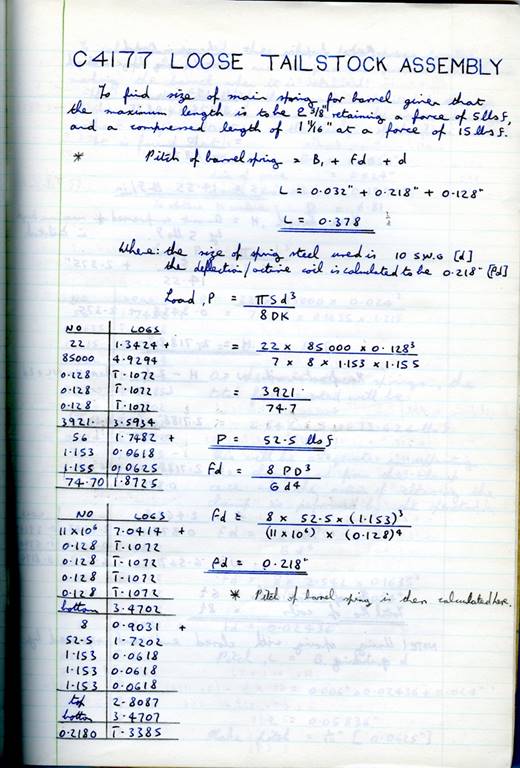 C4177 LOOSE TAILSTOCK ASSEMBLY
To find size of main spring for barrel given that
the maximum length is to be 2 3/8" retaining a force of 5 lbs f,
and a compressed length of 1 11/16" at a force of 15 lbs f.
* Pitch of barrel spring = B, + Fd + d
L = 0.032" + 0.218" + 0.128"
L = 0.378
Where: the size of spring steel used is 10 S.W.G [d]
the deflection/active coil is calculated to be 0.218" [Fd]
Load, P = πSd³ / 8DK
= 22 x 85000 x 0.128³ / 7 x 8 x 1.153 x 1.155
= 3921 / 74.7
P = 52.5 lbs f
Fd = 8 PD³ / Gd⁴
Fd = 8 x 52.5 x (1.153)³ / (11 x 10⁶) x (0.128)⁴
Fd = 0.218"
* Pitch of barrel spring is then calculated here.
NO LOGS
22 1.3424 +
85000 4.9294
0.128 1̄.1072
0.128 1̄.1072
0.128 1̄.1072
3921. 3.5934
56 1.7482 +
1.153 0.0618
1.155 0.0625
74.70 1.8725
NO LOGS
11x10⁶ 7.0414 +
0.128 1̄.1072
0.128 1̄.1072
0.128 1̄.1072
0.128 1̄.1072
bottom 3.4702
8 0.9031 +
52.5 1.7202
1.153 0.0618
1.153 0.0618
1.153 0.0618
top 2.8087
bottom 3.4707
0.2180 1̄.3385